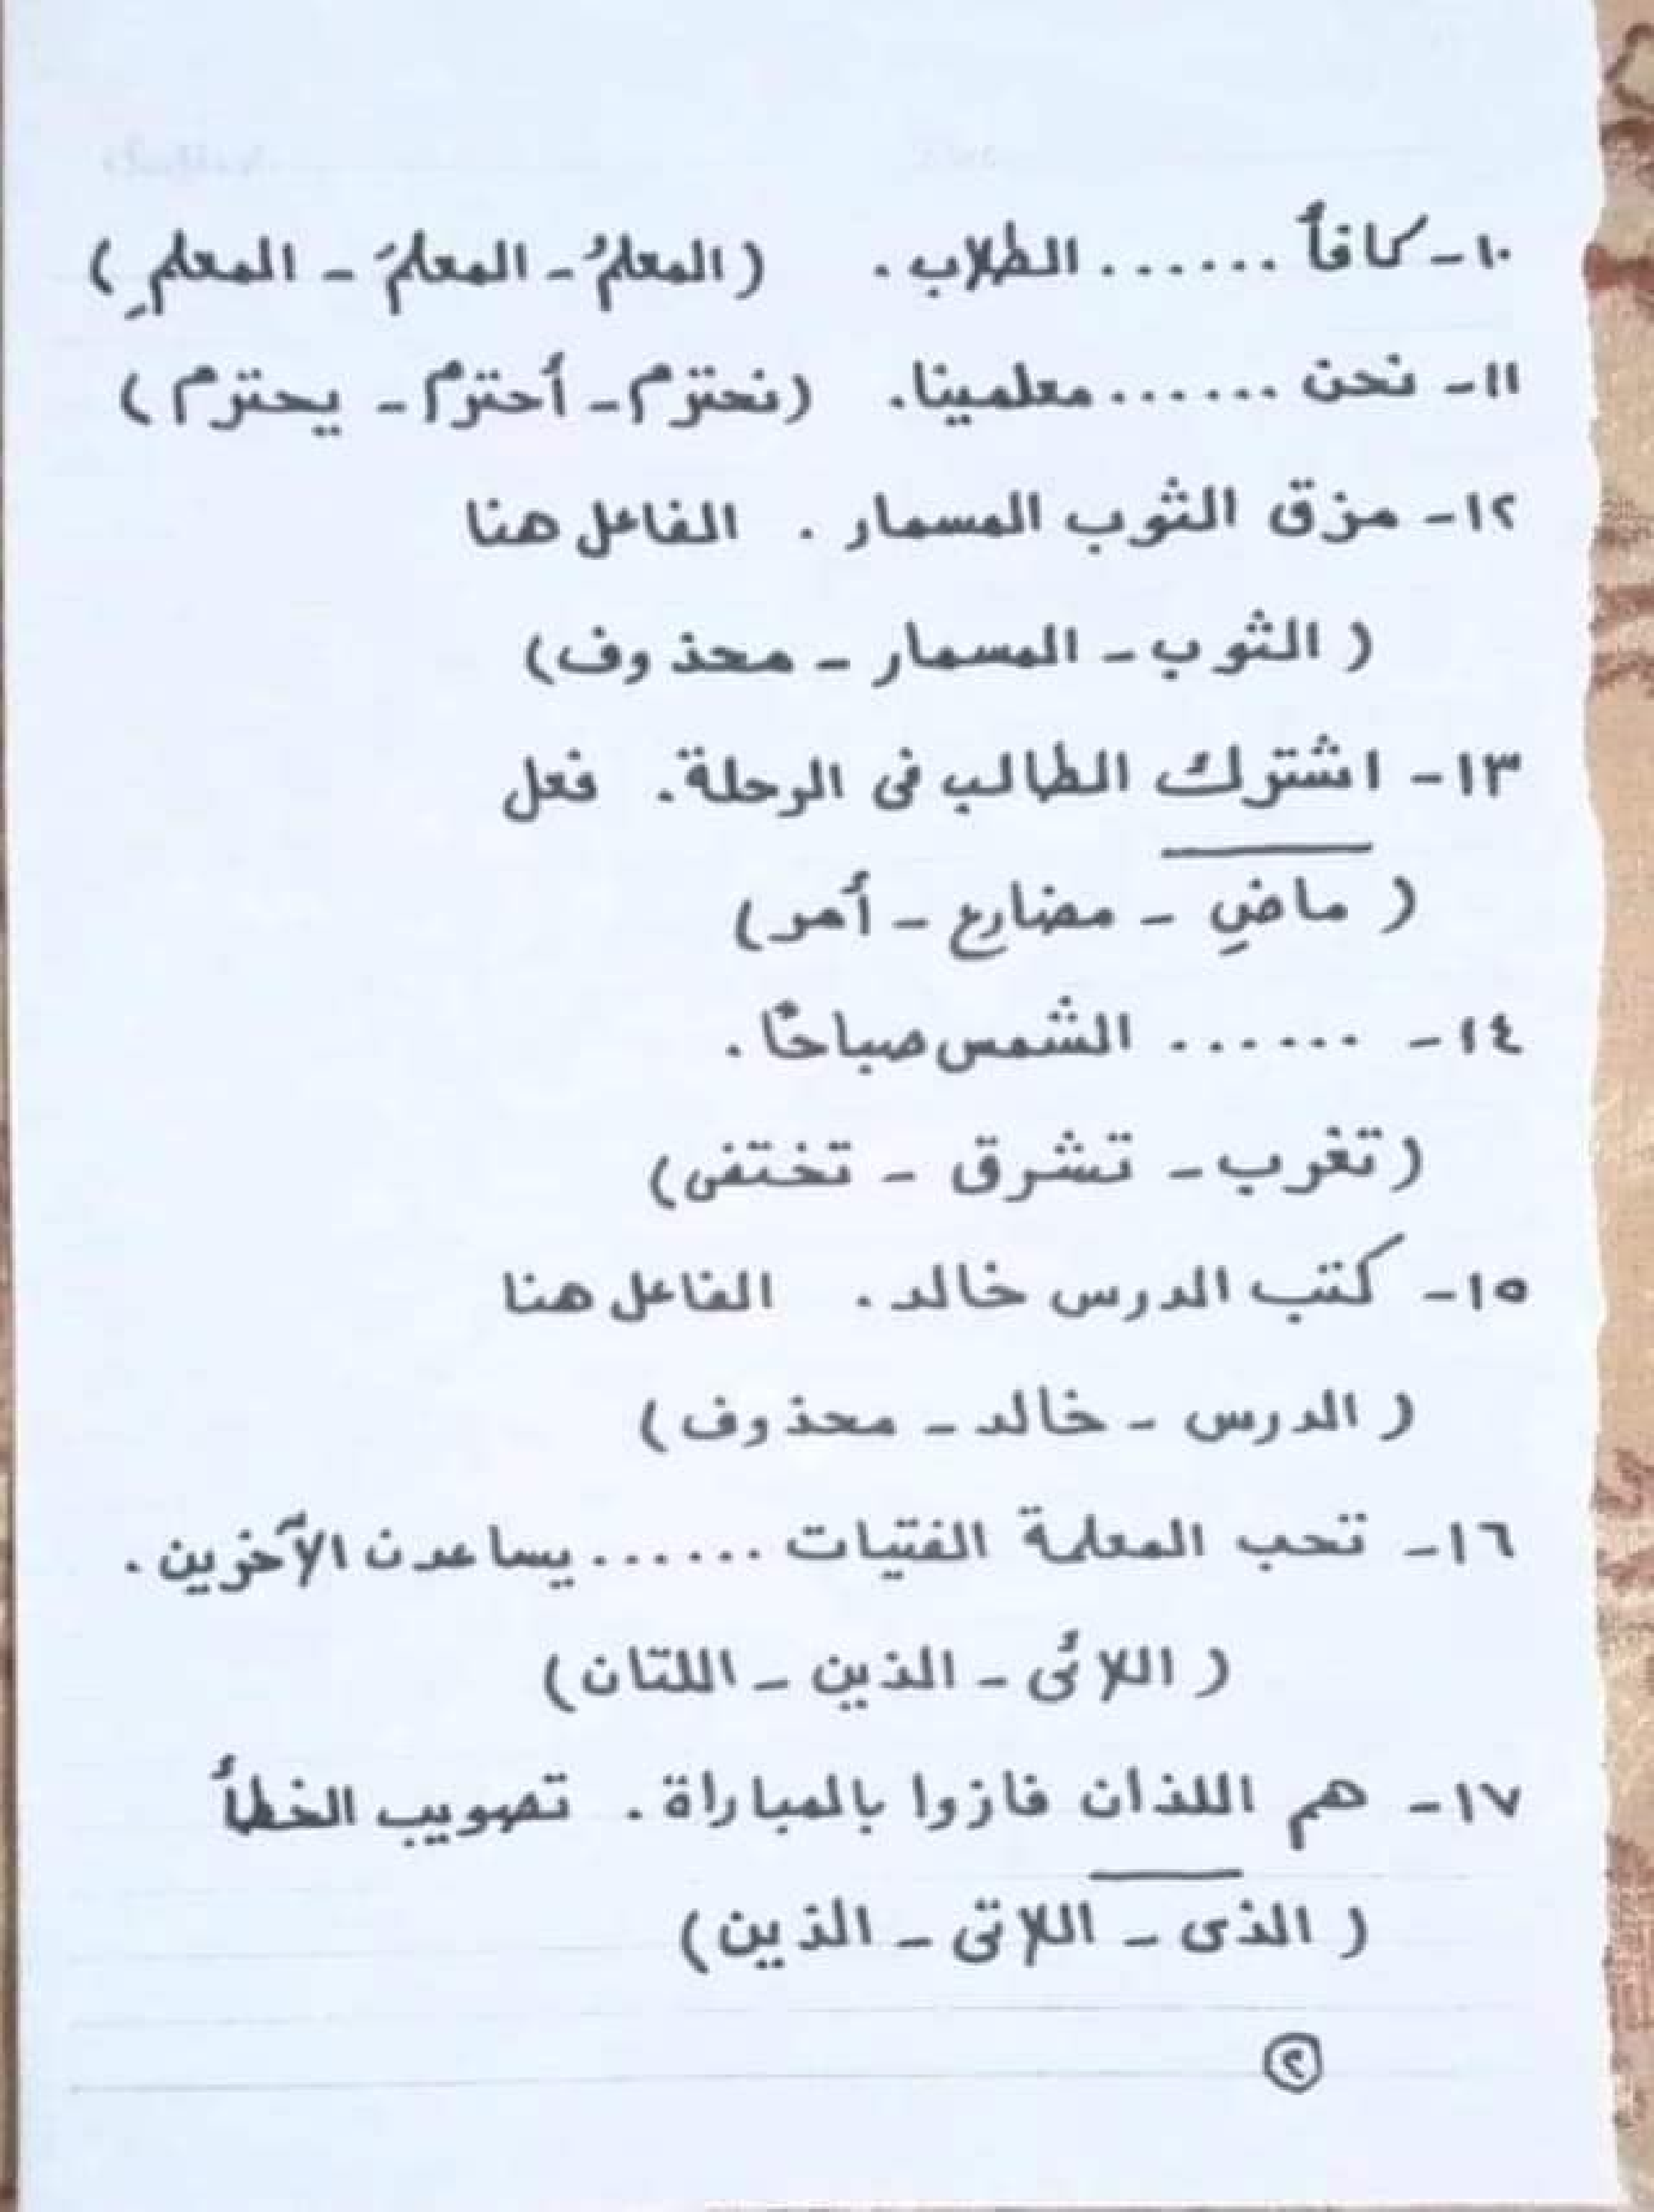 ١٠- كافأ ...... الطلاب. (المعلمُ - المعلمَ - المعلمِ)
١١- نحن ...... معلمينا. (نحترم - أحترم - يحترم)
١٢- مزق الثوب المسمار. الفاعل هنا
(الثوب - المسمار - محذوف)
١٣- اشترك الطالب فى الرحلة. فعل
(ماضِ - مضارع - أمر)
١٤- ...... الشمس صباحًا.
(تغرب - تشرق - تختفى)
١٥- كتب الدرس خالد. الفاعل هنا
(الدرس - خالد - محذوف)
١٦- تحب المعلمة الفتيات ...... يساعدن الآخرين.
(اللائى - الذين - اللتان)
١٧- هم اللذان فازوا بالمباراة. تصويب الخطأ
(الذى - اللاتى - الذين)
٢